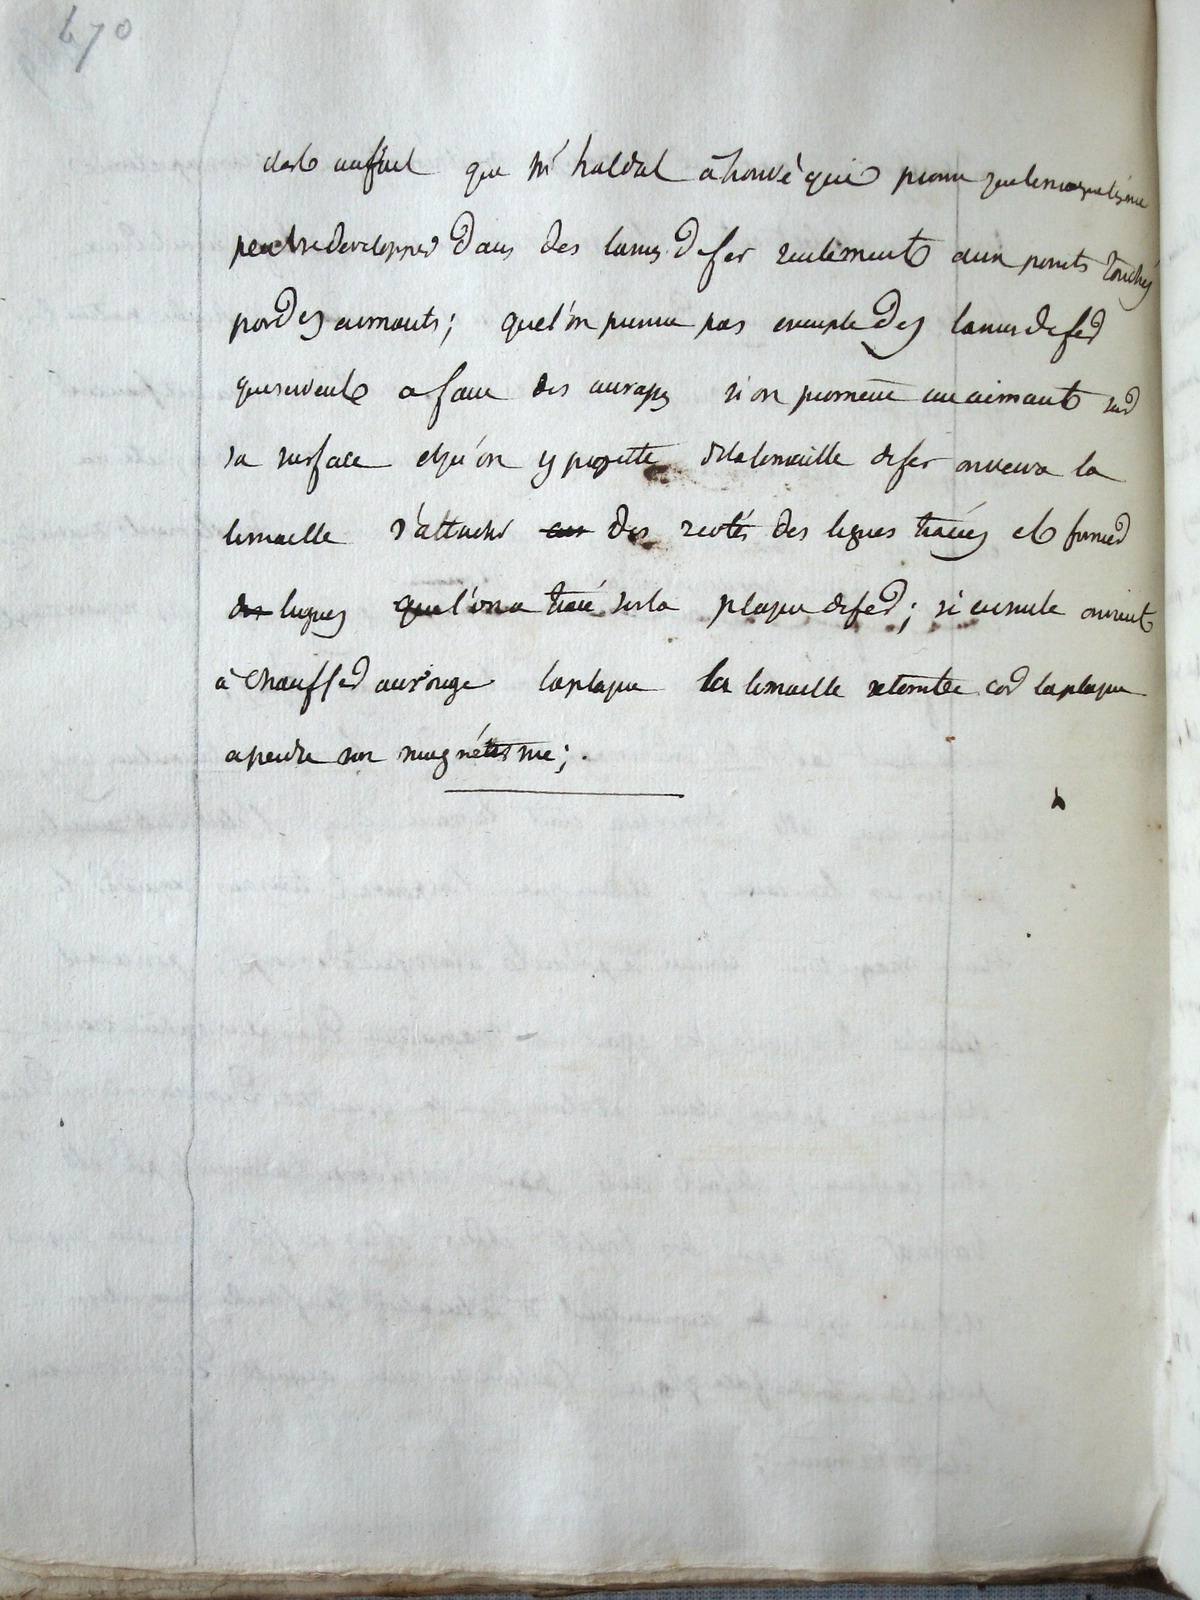 470
c'est un fait que Mr haldat a trouvé qui prouve que le magnétisme
peut se developper dans des lames de fer seulement aux points touchés
par des aimants; que l'on prenne par exemple des lames de fer
qui servent a faire des si on promene un aimant sur
sa surface et qu'on y projette de la limaille de fer on verra la
limaille s'attacher des cotés des lignes tracées et former
lignes que l'on a tracé sur la plaque de fer; si ensuite on vient
à chauffer au rouge la plaque la limaille retombe car la plaque
a perdu son magnétisme;.